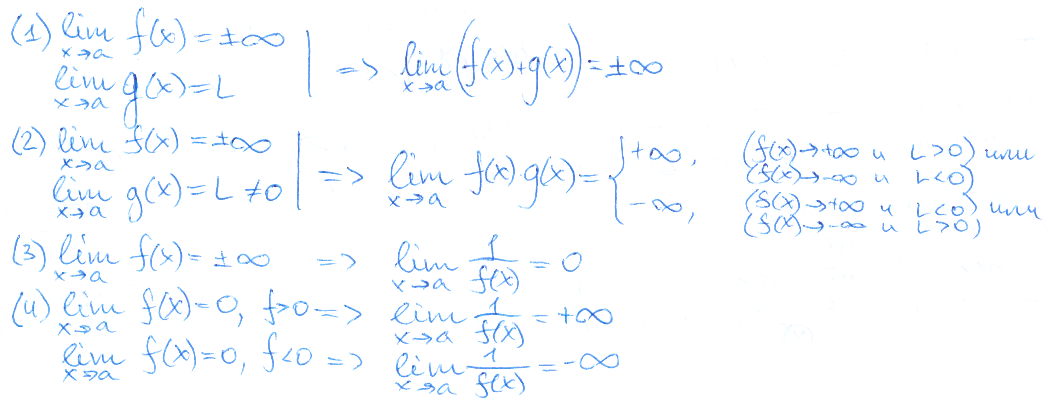 (1) lim x→a f(x) = ±∞
lim x→a g(x) = L => lim x→a (f(x)+g(x)) = ±∞
(2) lim x→a f(x) = ±∞
lim x→a g(x) = L ≠ 0 => lim x→a f(x)·g(x) = { +∞, (f(x)→+∞ и L>0) или
(f(x)→-∞ и L<0)
-∞, (f(x)→+∞ и L<0) или
(f(x)→-∞ и L>0)
(3) lim x→a f(x) = ±∞ => lim x→a 1/f(x) = 0
(4) lim x→a f(x) = 0, f>0 => lim x→a 1/f(x) = +∞
lim x→a f(x) = 0, f<0 => lim x→a 1/f(x) = -∞